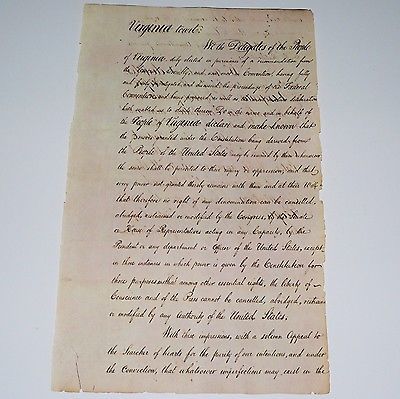 Virginia towit:
We the Delegates of the People
of Virginia duly elected in pursuance of a recommendation from
the General Assembly and now in Convention having fully
and freely investigated and discussed the proceedings of the Federal
Convention and being prepared as well as the most mature deliberation
hath enabled us to decide thereon Do in the name and in behalf of
the People of Virginia declare and make known that
the powers granted under the Constitution being derived from
the People of the United States may be resumed by them whensoever
the same shall be perverted to their injury or oppression and that
every power not granted thereby remains with them and at their will
that therefore no right of any denomination can be cancelled,
abridged restrained or modified by the Congress, by the Senate
or House of Representatives acting in any Capacity, by the
President or any department or Officer of the United States, except
in those instances in which power is given by the Constitution for
those purposes that among other essential rights, the liberty of
Conscience and of the Press cannot be cancelled, abridged, restrained
or modified by any Authority of the United States.
With these impressions, with a solemn Appeal to
the Searcher of hearts for the purity of our intentions, and under
the Conviction, that whatsoever imperfections may exist in the